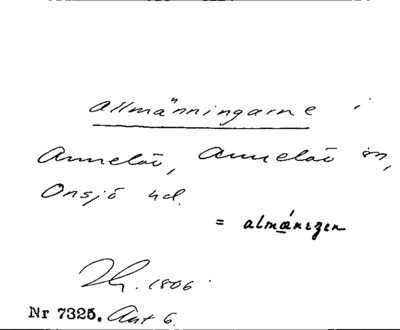 Allmänningarne i
Annelöv, Annelöv sn,
Onsjö hd.
= almǽnıgeɴ
1806.
Nr 7325. Akt 6.